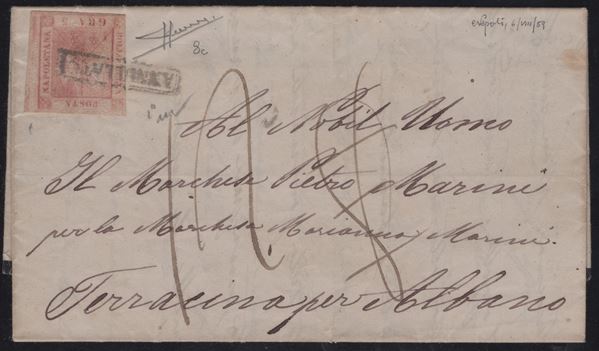 GRA 5
NAPOLETANA
BOLLO
POSTA
ANNULLATO
8c
Napoli, 6/VIII/59
18
Al Nobil Uomo
Il Marchese Pietro Marini
per la Marchesa Marianna Marini
Terracina per Albano